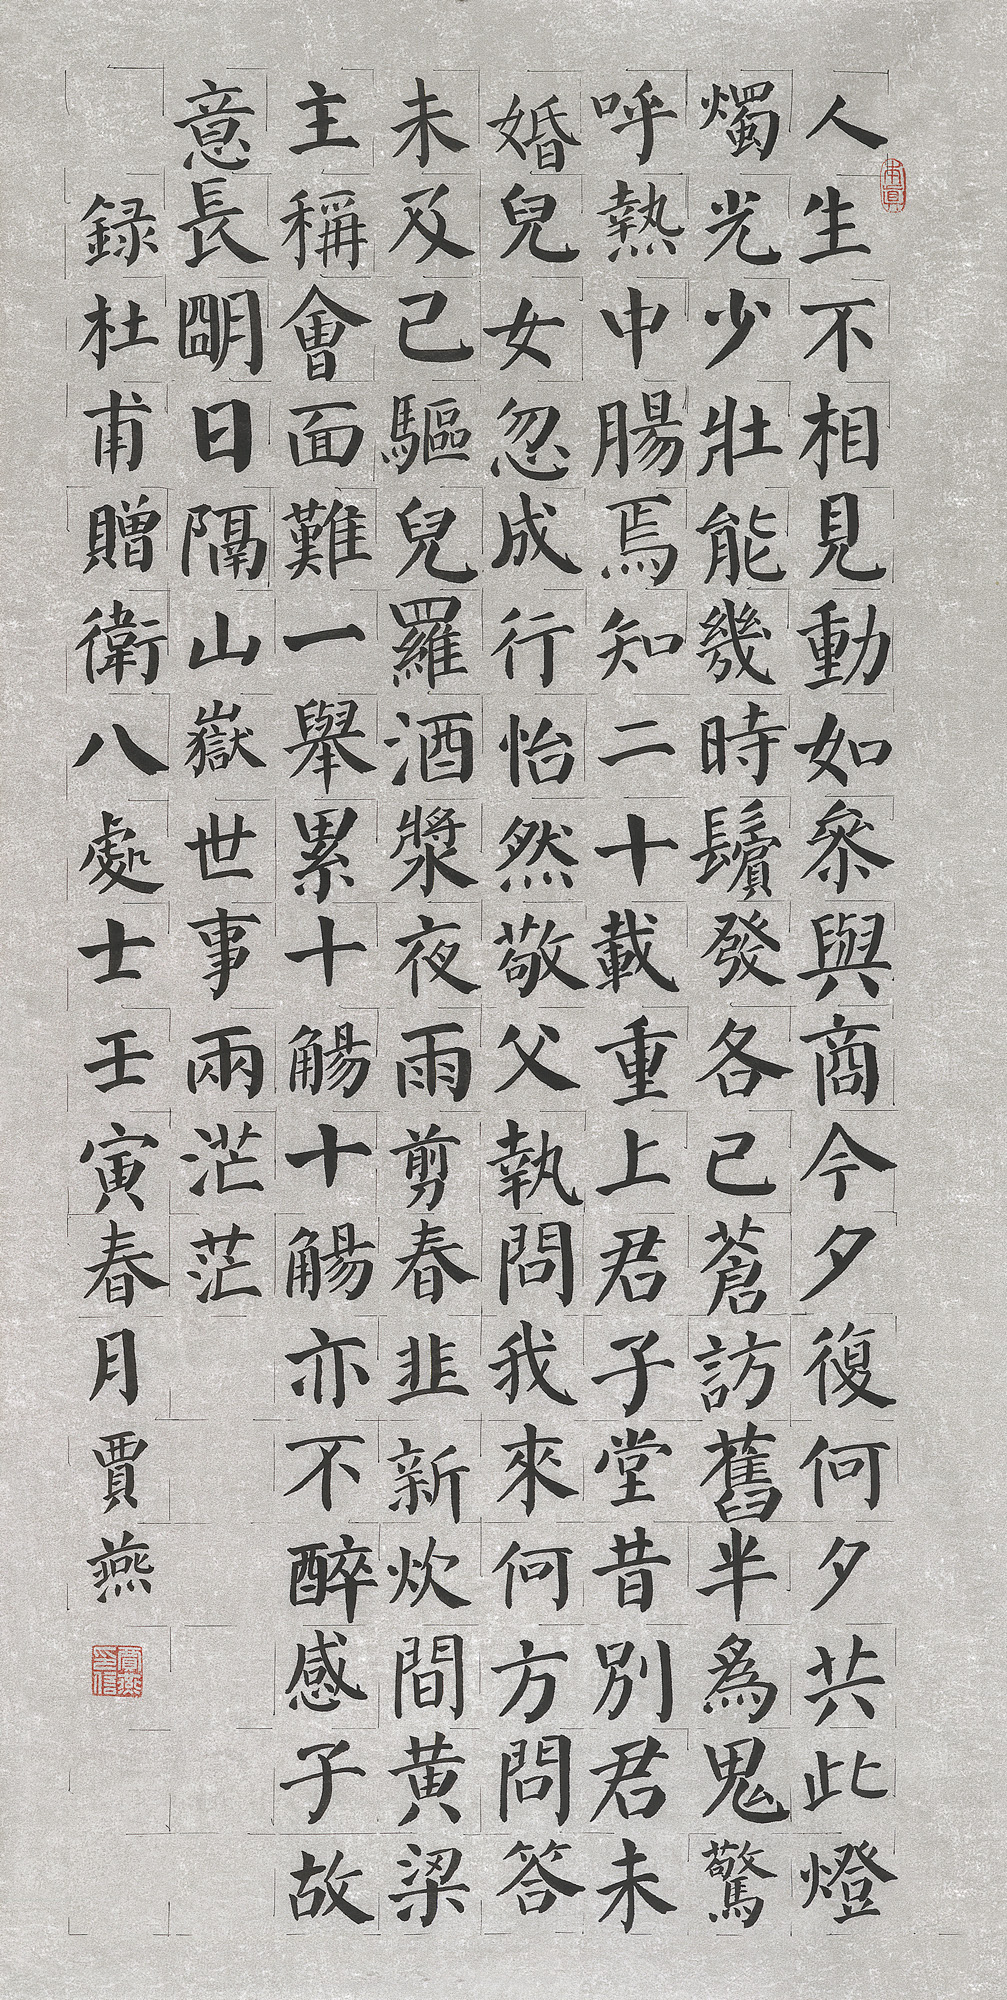 人生不相見動如參與商今夕復何夕共此燈
燭光少壯能幾時鬢發各已蒼訪舊半為鬼驚
呼熱中腸焉知二十載重上君子堂昔別君未
婚兒女忽成行怡然敬父執問我來何方問答
未及已驅兒羅酒漿夜雨剪春韭新炊間黃梁
主稱會面難一舉累十觴十觴亦不醉感子故
意長朙日隔山嶽世事兩茫茫
録杜甫贈衛八處士壬寅春月賈燕
本真
賈燕印信